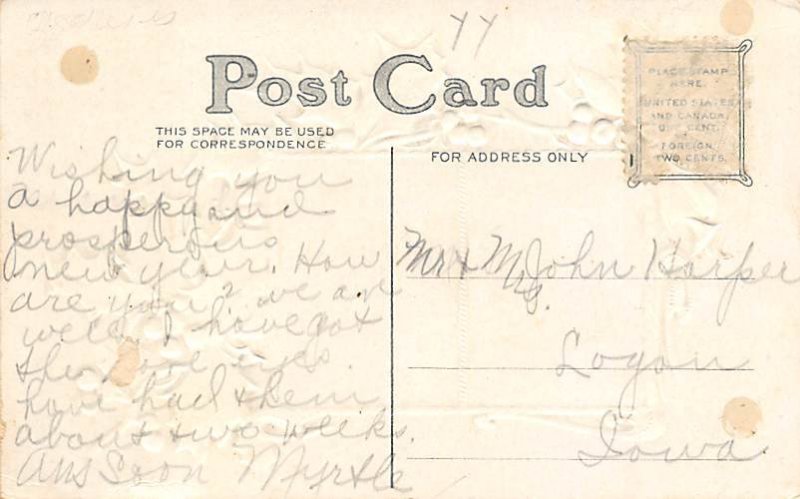 YY
Post Card
THIS SPACE MAY BE USED
FOR CORRESPONDENCE
FOR ADDRESS ONLY
PLACE STAMP
HERE.
UNITED STATES
AND CANADA
CENT.
FOREIGN
TWO CENTS.
Wishing you
a happy and
prosperous
new year. How
are you? we are
well. I have got
the sore eyes.
have had them
about two weeks.
Ans Soon Myrtle
Mr & Mrs. John Harper
Logan
Iowa